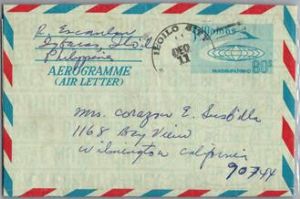 R. Escanlar
Iloilo
Philippines
AEROGRAMME
(AIR LETTER)
ILOILO
DEC
11
Pilipinas
80s
Mrs. Corazon E.
1168 Bay View
Wilmington California
90744